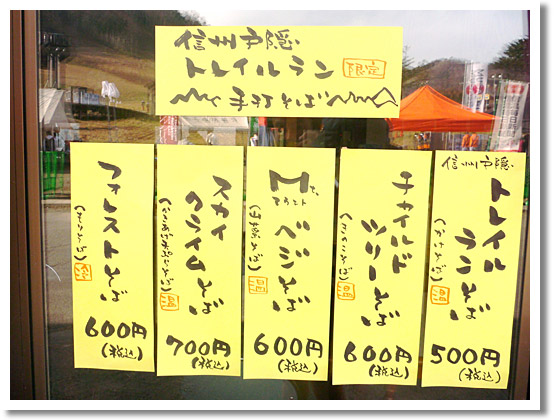 信州戸隠
トレイルラン 限定
手打そば
信州戸隠
トレイル
ランそば
温
500円
(税込)
チャイルド
ツリーそば
(きのこそば)
温
600円
(税込)
Mt.
マウント
ベジそば
(山菜そば)
温
600円
(税込)
スカイ
クライムそば
温
700円
(税込)
フォレストそば
(ざるそば)
600円
(税込)